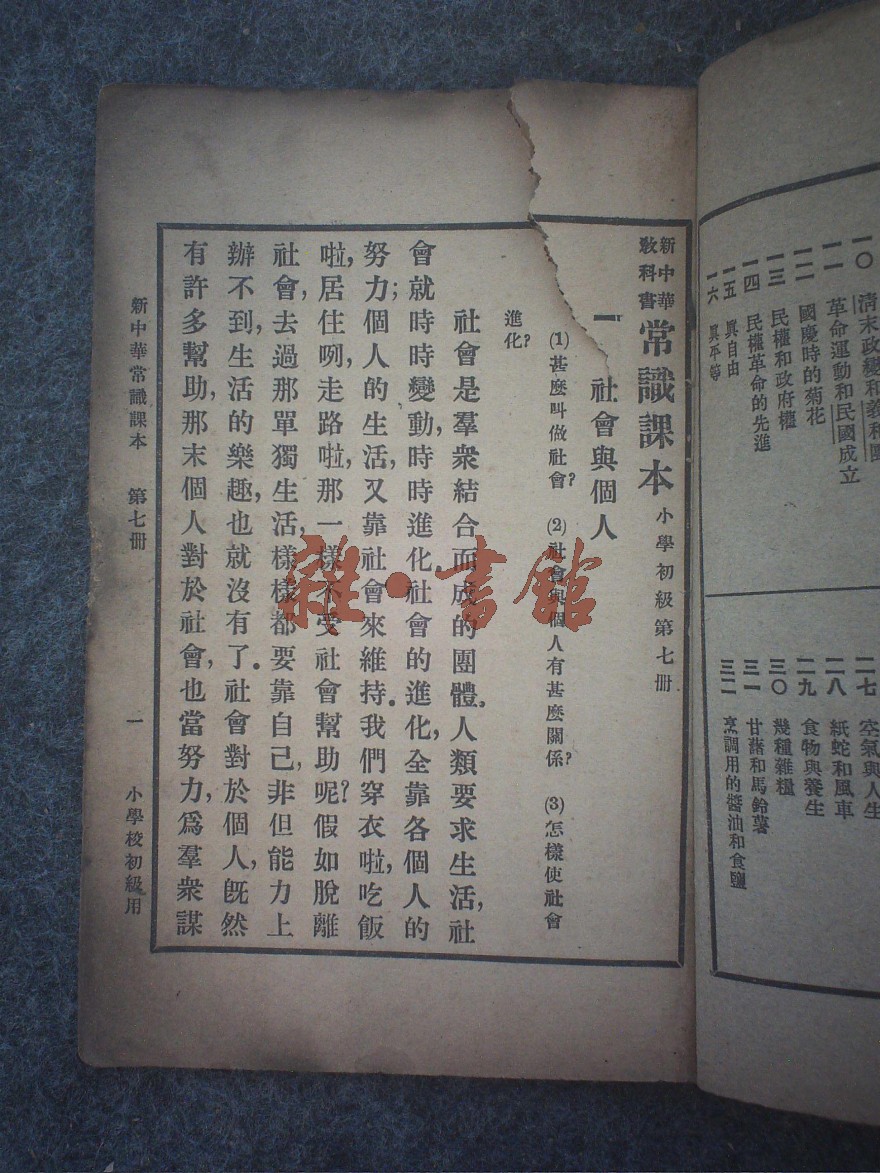 一〇 清末政變和義和團
一一 革命運動和民國成立
一二 國慶時的菊花
一三 民權和政府權
一四 民權革命的先進
一五 眞自由
一六 眞平等
二七 空氣與人生
二八 紙蛇和風車
二九 食物與養生
三〇 幾種雜糧
三一 甘藷和馬鈴薯
三二 烹調用的醬油和食鹽
新中華教科書 常識課本 小學初級第七册
一 社會與個人
(1)甚麼叫做社會? (2)社會與個人有甚麼關係? (3)怎樣使社會
進化?
社會是羣衆結合而成的團體。人類要求生活,社
會就時時變動,時時進化。社會的進化,全靠各個人的
努力;個人的生活,又靠社會來維持。我們穿衣啦,吃飯
啦,居住咧,走路啦,那一樣不受社會幫助呢?假如脫離
社會,去過那單獨生活,樣樣都要靠自己,非但能力上
辦不到,生活的樂趣,也就沒有了。社會對於個人,旣然
有許多幫助,那末個人對於社會,也當努力,爲羣衆謀
新中華常識課本 第七册 一 小學校初級用
雜·書館